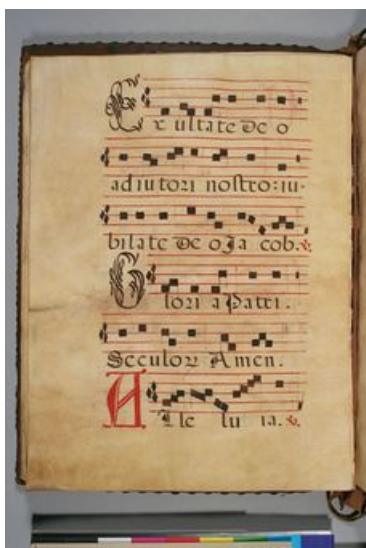 Ex ultate de o
ad iu tori nostro: iu-
bilate de o Ja cob.
Glori a Patri.
Seculorz Amen.
Alle lu ia.